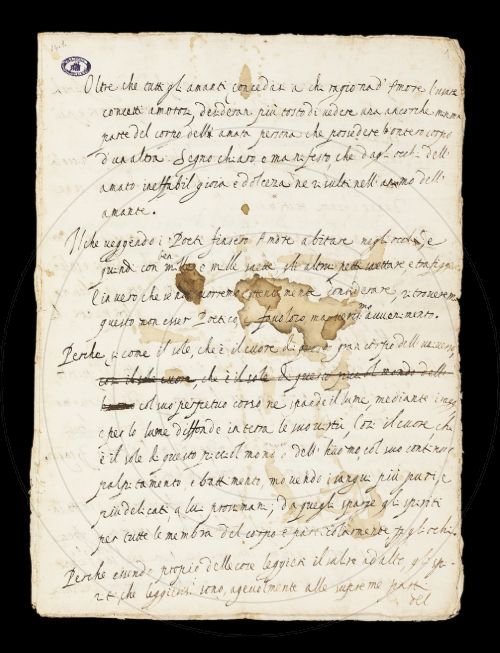 Oltre che tutti gl'amanti, conceda a chi ragiona d'Amore l'usare
concetti amorosi, desideran più tosto di vedere una ancorche minima
parte del corpo della amata persona che possedere l'intero corpo
d'un altra. Segno chiaro e manifesto, che dagl'occhi dell'
amato ineffabil gioia e dolcezza ne risulti nell'animo dell'
amante.
Il che veggendo i Poeti finsero Amore abitare negl'occhi, e
quindi con mille e mille saette gli altrui petti saettare e
E in vero che se noi vorremo considerare, ritroveremo
questo non esser Poetica favola, ma vero avvenimento.
Perche si come il sole, che è il cuore di questo gran corpo dell'universo,
così il cuore, che è il sole di questo piccol mondo dell'
col suo perpetuo corso ne spande il lume, mediante i raggi
e per lo lume diffonde in terra le sue virtù, Così il cuore che
è il sole di questo piccol mondo dell'huomo, col suo continuo
palpitamento, e battimento, movendo i sangui più puri, e
più delicati, a lui prossimani; da quegli sparge gli spiriti
per tutte le membra del corpo e particolarmente per gl'occhi.
Perche essendo proprio delle cose leggieri il salire ad alto, gli spi-
riti, che leggierissimi sono, agevolmente alle supreme parti
del